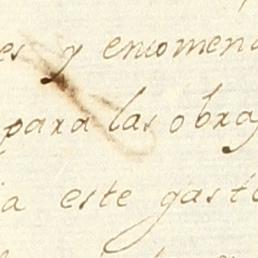 es y encomend
para las obras
ia este gasto